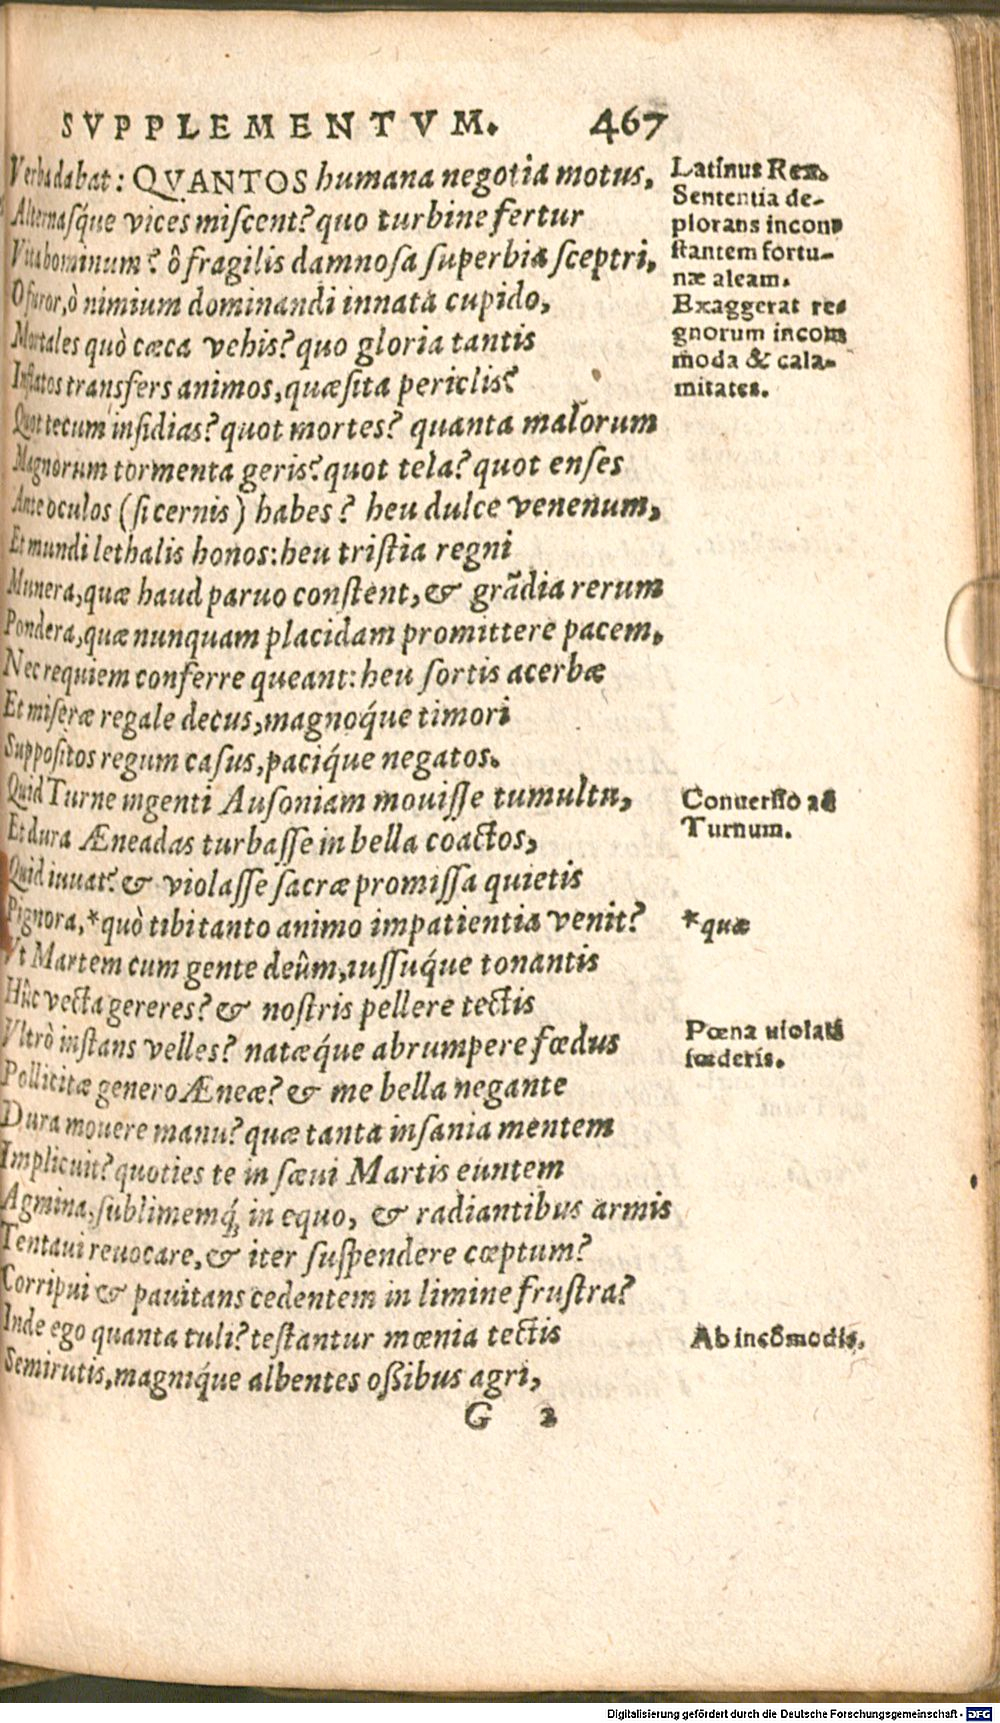 SVPPLEMENTVM. 467
Verba dabat: QVANTOS humana negotia motus,
Alternasq́ue vices miscent? quo turbine fertur
Vita hominum? ô fragilis damnosa superbia sceptri,
O furor, ò nimium dominandi innata cupido,
Mortales quò cæca vehis? quo gloria tantis
Inflatos transfers animos, quæsita periclis?
Quot tecum insidias? quot mortes? quanta malorum
Magnorum tormenta geris? quot tela? quot enses
Ante oculos (si cernis) habes? heu dulce venenum,
Et mundi lethalis honos: heu tristia regni
Munera, quæ haud paruo constent, & grãdia rerum
Pondera, quæ nunquam placidam promittere pacem,
Nec requiem conferre queant: heu sortis acerbæ
Et miseræ regale decus, magnoq́ue timori
Suppositos regum casus, paciq́ue negatos.
Quid Turne ingenti Ausoniam mouisse tumultu,
Et dura Æneadas turbasse in bella coactos,
Quid iuuat? & violasse sacræ promissa quietis
Pignora, *quò tibi tanto animo impatientia venit?
Vt Martem cum gente deûm, iussuq́ue tonantis
Hûc vecta gereres? & nostris pellere tectis
Vltrò instans velles? natæq́ue abrumpere fœdus
Pollicitæ genero Æneæ? & me bella negante
Dura mouere manu? quæ tanta insania mentem
Implicuit? quoties te in sæui Martis euntem
Agmina, sublimemq́; in equo, & radiantibus armis
Tentaui reuocare, & iter suspendere cœptum?
Corripui & pauitans cedentem in limine frustra?
Inde ego quanta tuli? testantur mœnia tectis
Semirutis, magniq́ue albentes oßibus agri,
G 2
Latinus Rex.
Sententia de-
plorans incon-
stantem fortu-
næ aleam.
Exaggerat re-
gnorum incom
moda & cala-
mitates.
Conuersio ad
Turnum.
*quæ
Pœna uiolati
fœderis.
Ab incõmodis.
Digitalisierung gefördert durch die Deutsche Forschungsgemeinschaft - DFG